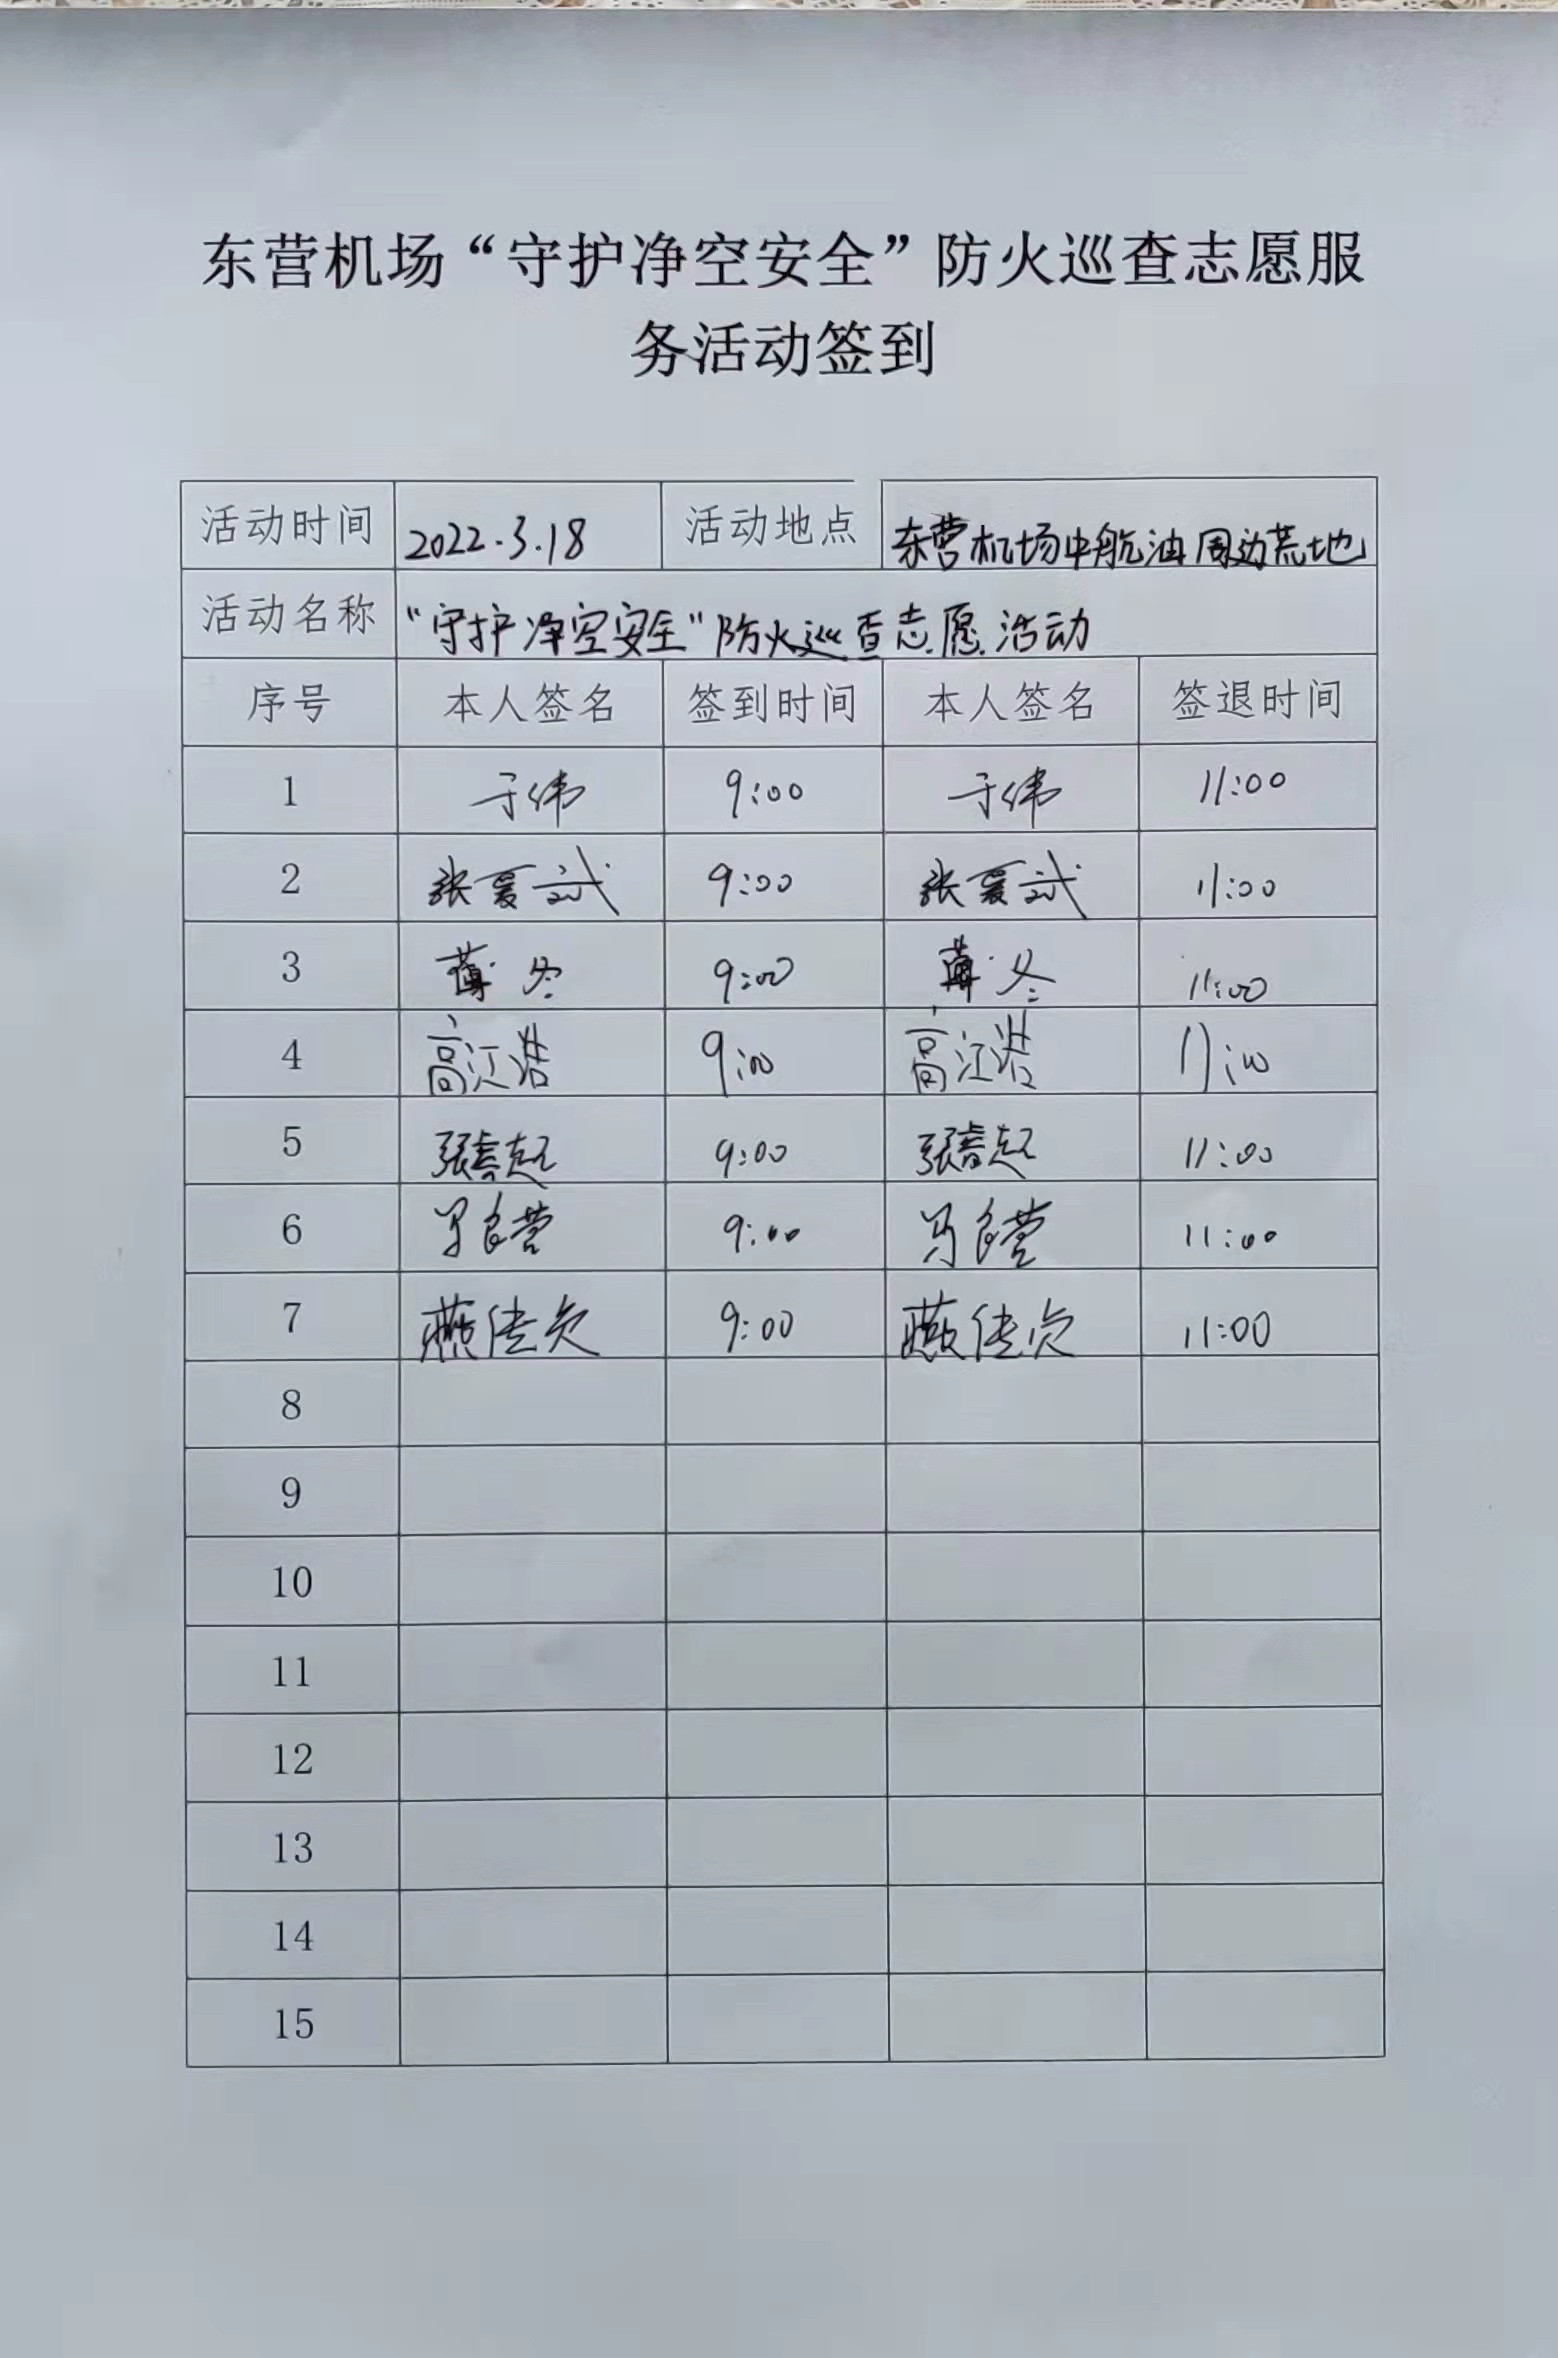 东营机场“守护净空安全”防火巡查志愿服
务活动签到
活动时间 2022.3.18 活动地点 东营机场中航油周边荒地
活动名称 “守护净空安全”防火巡查志愿活动
序号 本人签名 签到时间 本人签名 签退时间
1 于伟 9:00 于伟 11:00
2 张夏斌 9:00 张夏斌 11:00
3 薄冬 9:00 薄冬 11:00
4 高江浩 9:00 高江浩 11:00
5 张睿起 9:00 张睿起 11:00
6 马良营 9:00 马良营 11:00
7 燕佳 9:00 燕佳 11:00
8
9
10
11
12
13
14
15